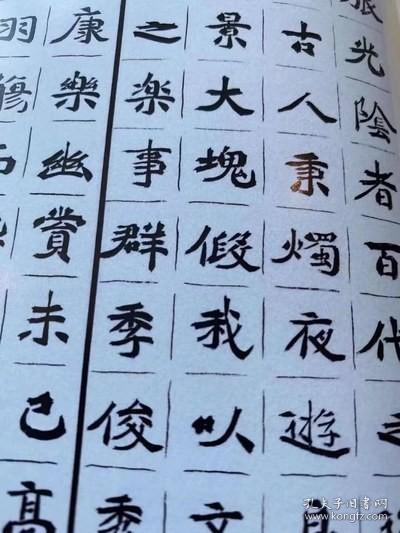 光陰者百代
古人秉燭夜遊
景大塊假我以文
之楽事群季俊秀
康樂幽賞未已高
羽觴
孔夫子旧书网
www.kongfz.com